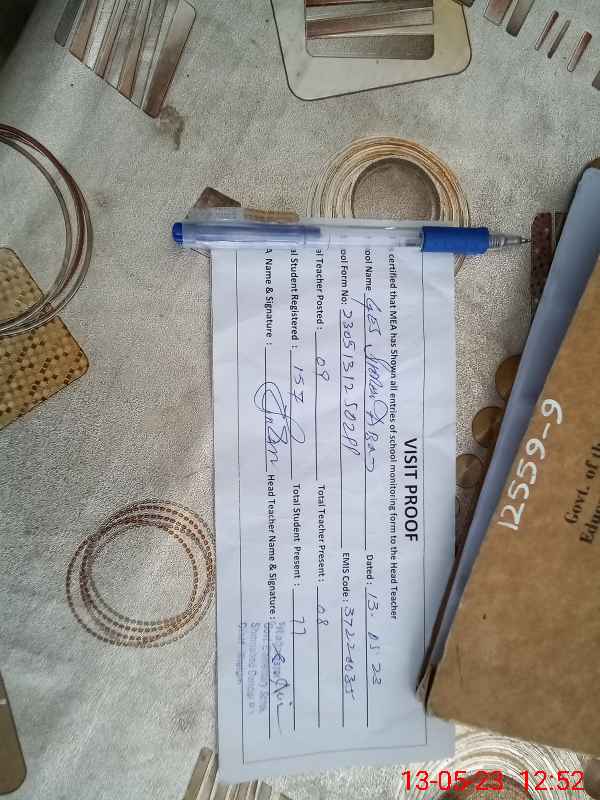 VISIT PROOF
s certified that MEA has Shown all entries of school monitoring form to the Head Teacher
ool Name GES Dated : 13. 05 23
ool Form No: EMIS Code : 37220035
al Teacher Posted : 09 Total Teacher Present : 08
al Student Registered : 157 Total Student Present : 77
A Name & Signature : Head Teacher Name & Signature :
12559-9
Govt. of the
13-05-23 12:52